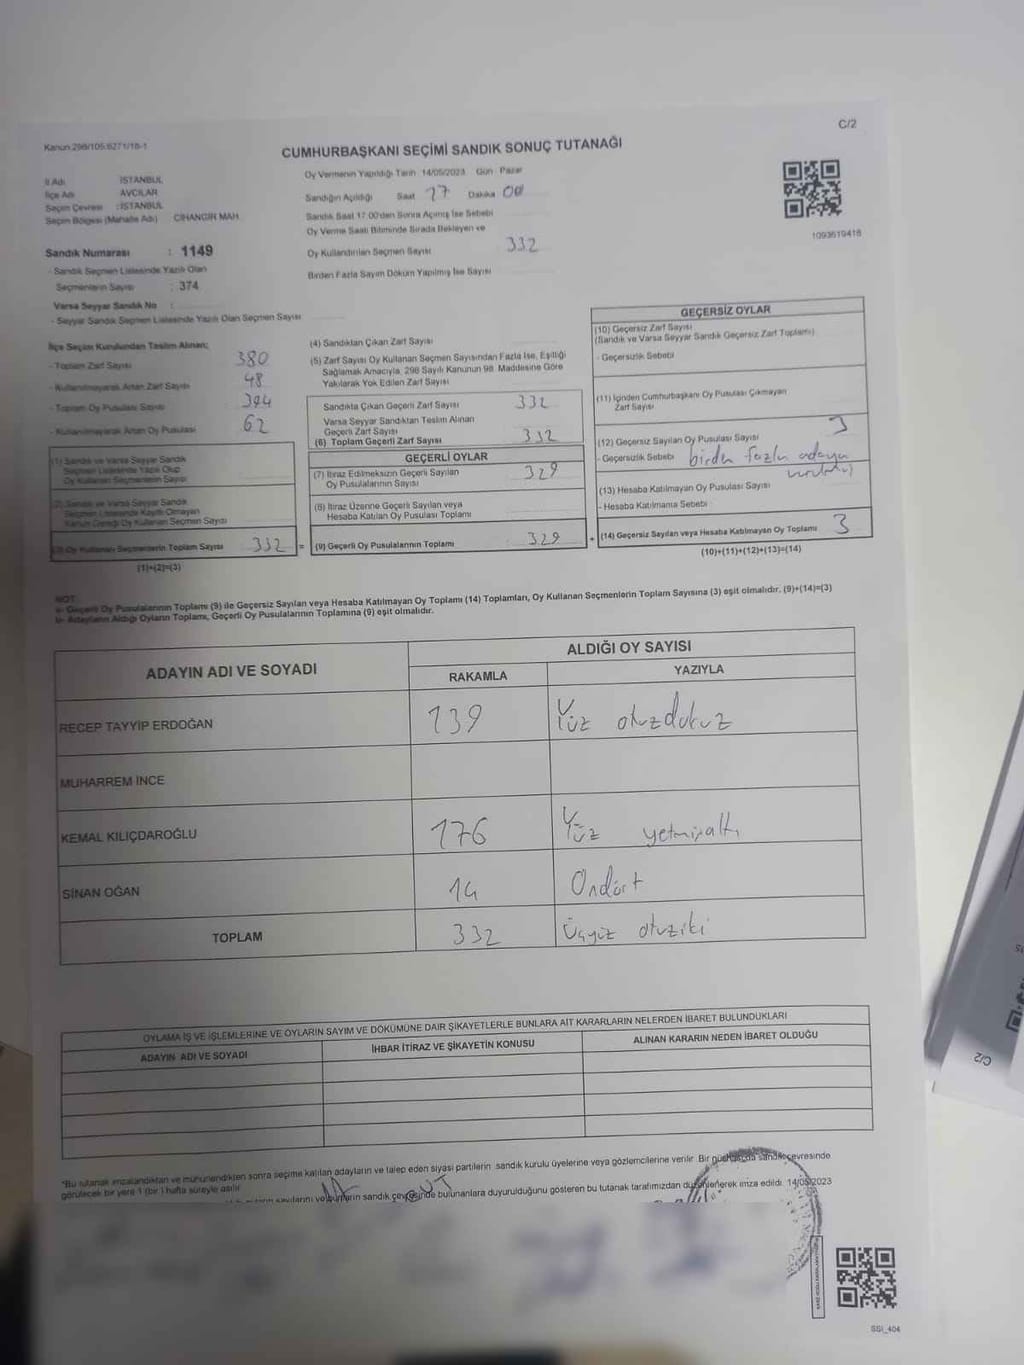 C/2
Kanun:298/105,6271/18-1
CUMHURBAŞKANI SEÇİMİ SANDIK SONUÇ TUTANAĞI
İl Adı : İSTANBUL
İlçe Adı : AVCILAR
Seçim Çevresi : İSTANBUL
Seçim Bölgesi (Mahalle Adı) : CİHANGİR MAH.
Sandık Numarası : 1149
- Sandık Seçmen Listesinde Yazılı Olan
Seçmenlerin Sayısı : 374
Varsa Seyyar Sandık No :
- Seyyar Sandık Seçmen Listesinde Yazılı Olan Seçmen Sayısı
Oy Vermenin Yapıldığı Tarih 14/05/2023 Gün : Pazar
Sandığın Açıldığı Saat 17 Dakika 00
Sandık Saat 17.00'den Sonra Açılmış İse Sebebi
Oy Verme Saati Bitiminde Sırada Bekleyen ve
Oy Kullandırılan Seçmen Sayısı 332
Birden Fazla Sayım Döküm Yapılmış İse Sayısı
1093619418
İlçe Seçim Kurulundan Teslim Alınan;
- Toplam Zarf Sayısı 380
- Kullanılmayarak Artan Zarf Sayısı 48
- Toplam Oy Pusulası Sayısı 394
- Kullanılmayarak Artan Oy Pusulası 62
(1) Sandık ve Varsa Seyyar Sandık
Seçmen Listesinde Yazılı Olup
Oy Kullanan Seçmenlerin Sayısı
(2) Sandık ve Varsa Seyyar Sandık
Seçmen Listesinde Kayıtlı Olmayan
Kanun Gereği Oy Kullanan Seçmen Sayısı
(3) Oy Kullanan Seçmenlerin Toplam Sayısı 332 =
(1)+(2)=(3)
(4) Sandıktan Çıkan Zarf Sayısı
(5) Zarf Sayısı Oy Kullanan Seçmen Sayısından Fazla İse, Eşitliği
Sağlamak Amacıyla, 298 Sayılı Kanunun 98. Maddesine Göre
Yakılarak Yok Edilen Zarf Sayısı
Sandıkta Çıkan Geçerli Zarf Sayısı 332
Varsa Seyyar Sandıktan Teslim Alınan
Geçerli Zarf Sayısı
(6) Toplam Geçerli Zarf Sayısı 332
GEÇERLİ OYLAR
(7) İtiraz Edilmeksizin Geçerli Sayılan
Oy Pusulalarının Sayısı 329
(8) İtiraz Üzerine Geçerli Sayılan veya
Hesaba Katılan Oy Pusulası Toplamı
(9) Geçerli Oy Pusulalarının Toplamı 329 +
GEÇERSİZ OYLAR
(10) Geçersiz Zarf Sayısı
(Sandık ve Varsa Seyyar Sandık Geçersiz Zarf Toplamı)
- Geçersizlik Sebebi
(11) İçinden Cumhurbaşkanı Oy Pusulası Çıkmayan
Zarf Sayısı
(12) Geçersiz Sayılan Oy Pusulası Sayısı 3
- Geçersizlik Sebebi birden fazla adaya
(13) Hesaba Katılmayan Oy Pusulası Sayısı
- Hesaba Katılmama Sebebi
(14) Geçersiz Sayılan veya Hesaba Katılmayan Oy Toplamı 3
(10)+(11)+(12)+(13)=(14)
NOT:
a- Geçerli Oy Pusulalarının Toplamı (9) ile Geçersiz Sayılan veya Hesaba Katılmayan Oy Toplamı (14) Toplamları, Oy Kullanan Seçmenlerin Toplam Sayısına (3) eşit olmalıdır. (9)+(14)=(3)
b- Adayların Aldığı Oyların Toplamı, Geçerli Oy Pusulalarının Toplamına (9) eşit olmalıdır.
ADAYIN ADI VE SOYADI
ALDIĞI OY SAYISI
RAKAMLA YAZIYLA
RECEP TAYYİP ERDOĞAN 139 Yüz otuzdokuz
MUHARREM İNCE
KEMAL KILIÇDAROĞLU 176 Yüz yetmişaltı
SİNAN OĞAN 14 Ondört
TOPLAM 332 Üçyüz otuziki
OYLAMA İŞ VE İŞLEMLERİNE VE OYLARIN SAYIM VE DÖKÜMÜNE DAİR ŞİKAYETLERLE BUNLARA AİT KARARLARIN NELERDEN İBARET BULUNDUKLARI
ADAYIN ADI VE SOYADI İHBAR İTİRAZ VE ŞİKAYETİN KONUSU ALINAN KARARIN NEDEN İBARET OLDUĞU
*Bu tutanak imzalandıktan ve mühürlendikten sonra seçime katılan adayların ve talep eden siyasi partilerin sandık kurulu üyelerine veya gözlemcilerine verilir. Bir sandık çevresinde
görülecek bir yere 1 (bir ) hafta süreyle asılır.
sandık çevresinde bulunanlara duyurulduğunu gösteren bu tutanak tarafımızdan düzenlenerek imza edildi. 14/05/2023
SSI_404
C/2